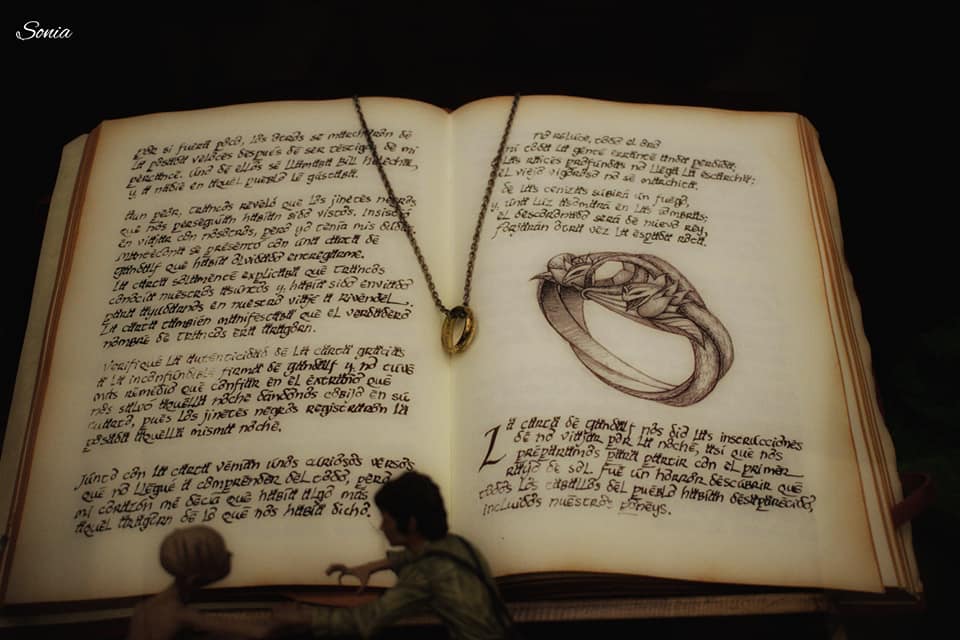 Sonia
por si fuera poco, los otros se marcharon de
la posada veloces después de ser testigos de mi
percance. Uno de ellos se llamaba Bill Helechal,
y a nadie en aquel pueblo le gustaba.
Aun peor, Trancos reveló que los jinetes negros
que nos perseguían habían sido vistos. Insistió
en viajar con nosotros, pero yo tenía mis dudas.
Mantecona se presentó con una carta de
Gandalf que había olvidado entregarme.
La carta solamente explicaba que Trancos
conocía nuestros asuntos y había sido enviado
para ayudarnos en nuestro viaje a Rivendel.
La carta también manifestaba que el verdadero
nombre de Trancos era Aragorn.
Verifiqué la autenticidad de la carta gracias
a la inconfundible firma de Gandalf y no tuve
más remedio que confiar en el extraño que
nos salvó aquella noche dándonos cobijo en su
cuarto, pues los jinetes negros registraron la
posada aquella misma noche.
Junto con la carta venían unos curiosos versos
que no llegué a comprender del todo, pero
mi corazón me decía que había algo más
aquel Aragorn de lo que nos había dicho.
no reluce, todo el oro
ni toda la gente errante anda perdida;
las raíces profundas no llega la escarcha;
el viejo vigoroso no se marchita.
de las cenizas subirá un fuego,
y una luz asomará en las sombras;
el descoronado será de nuevo rey,
forjarán otra vez la espada rota.
La carta de Gandalf nos dio las instrucciones
de no viajar por la noche, así que nos
preparamos para partir con el primer
rayo de sol. Fue un horror descubrir que
todos los caballos del pueblo habían desaparecido,
incluidos nuestros poneys.